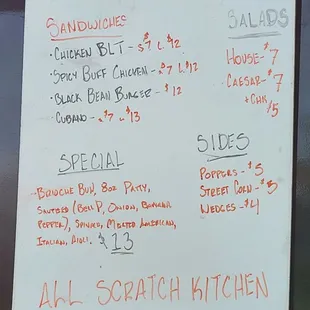 SANDWICHES
• CHICKEN BLT - $7 L $12
• SPICY BUFF CHICKEN - $7 L $12
• BLACK BEAN BURGER - $12
• CUBANO - $7 L $13
SALADS
HOUSE - $7
CAESAR - $7
+ CHK $5
SPECIAL
- BRIOCHE BUN, 8OZ PATTY,
SAUTEED (BELL P, ONION, BANANA
PEPPER), SPINACH, MELTED AMERICAN,
ITALIAN, AIOLI. $13
SIDES
POPPERS - $5
STREET CORN - $5
WEDGES - $4
ALL SCRATCH KITCHEN